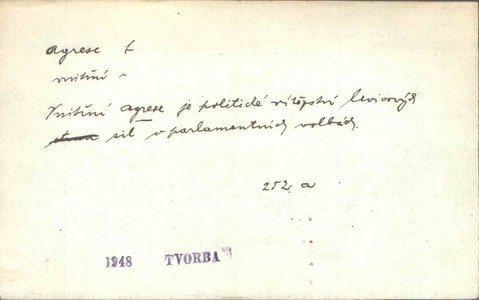 agrese f
vnitřní ~
Vnitřní agrese je politické vítězství levicových
sil v parlamentních volbách.
252 a
1948 TVORBA